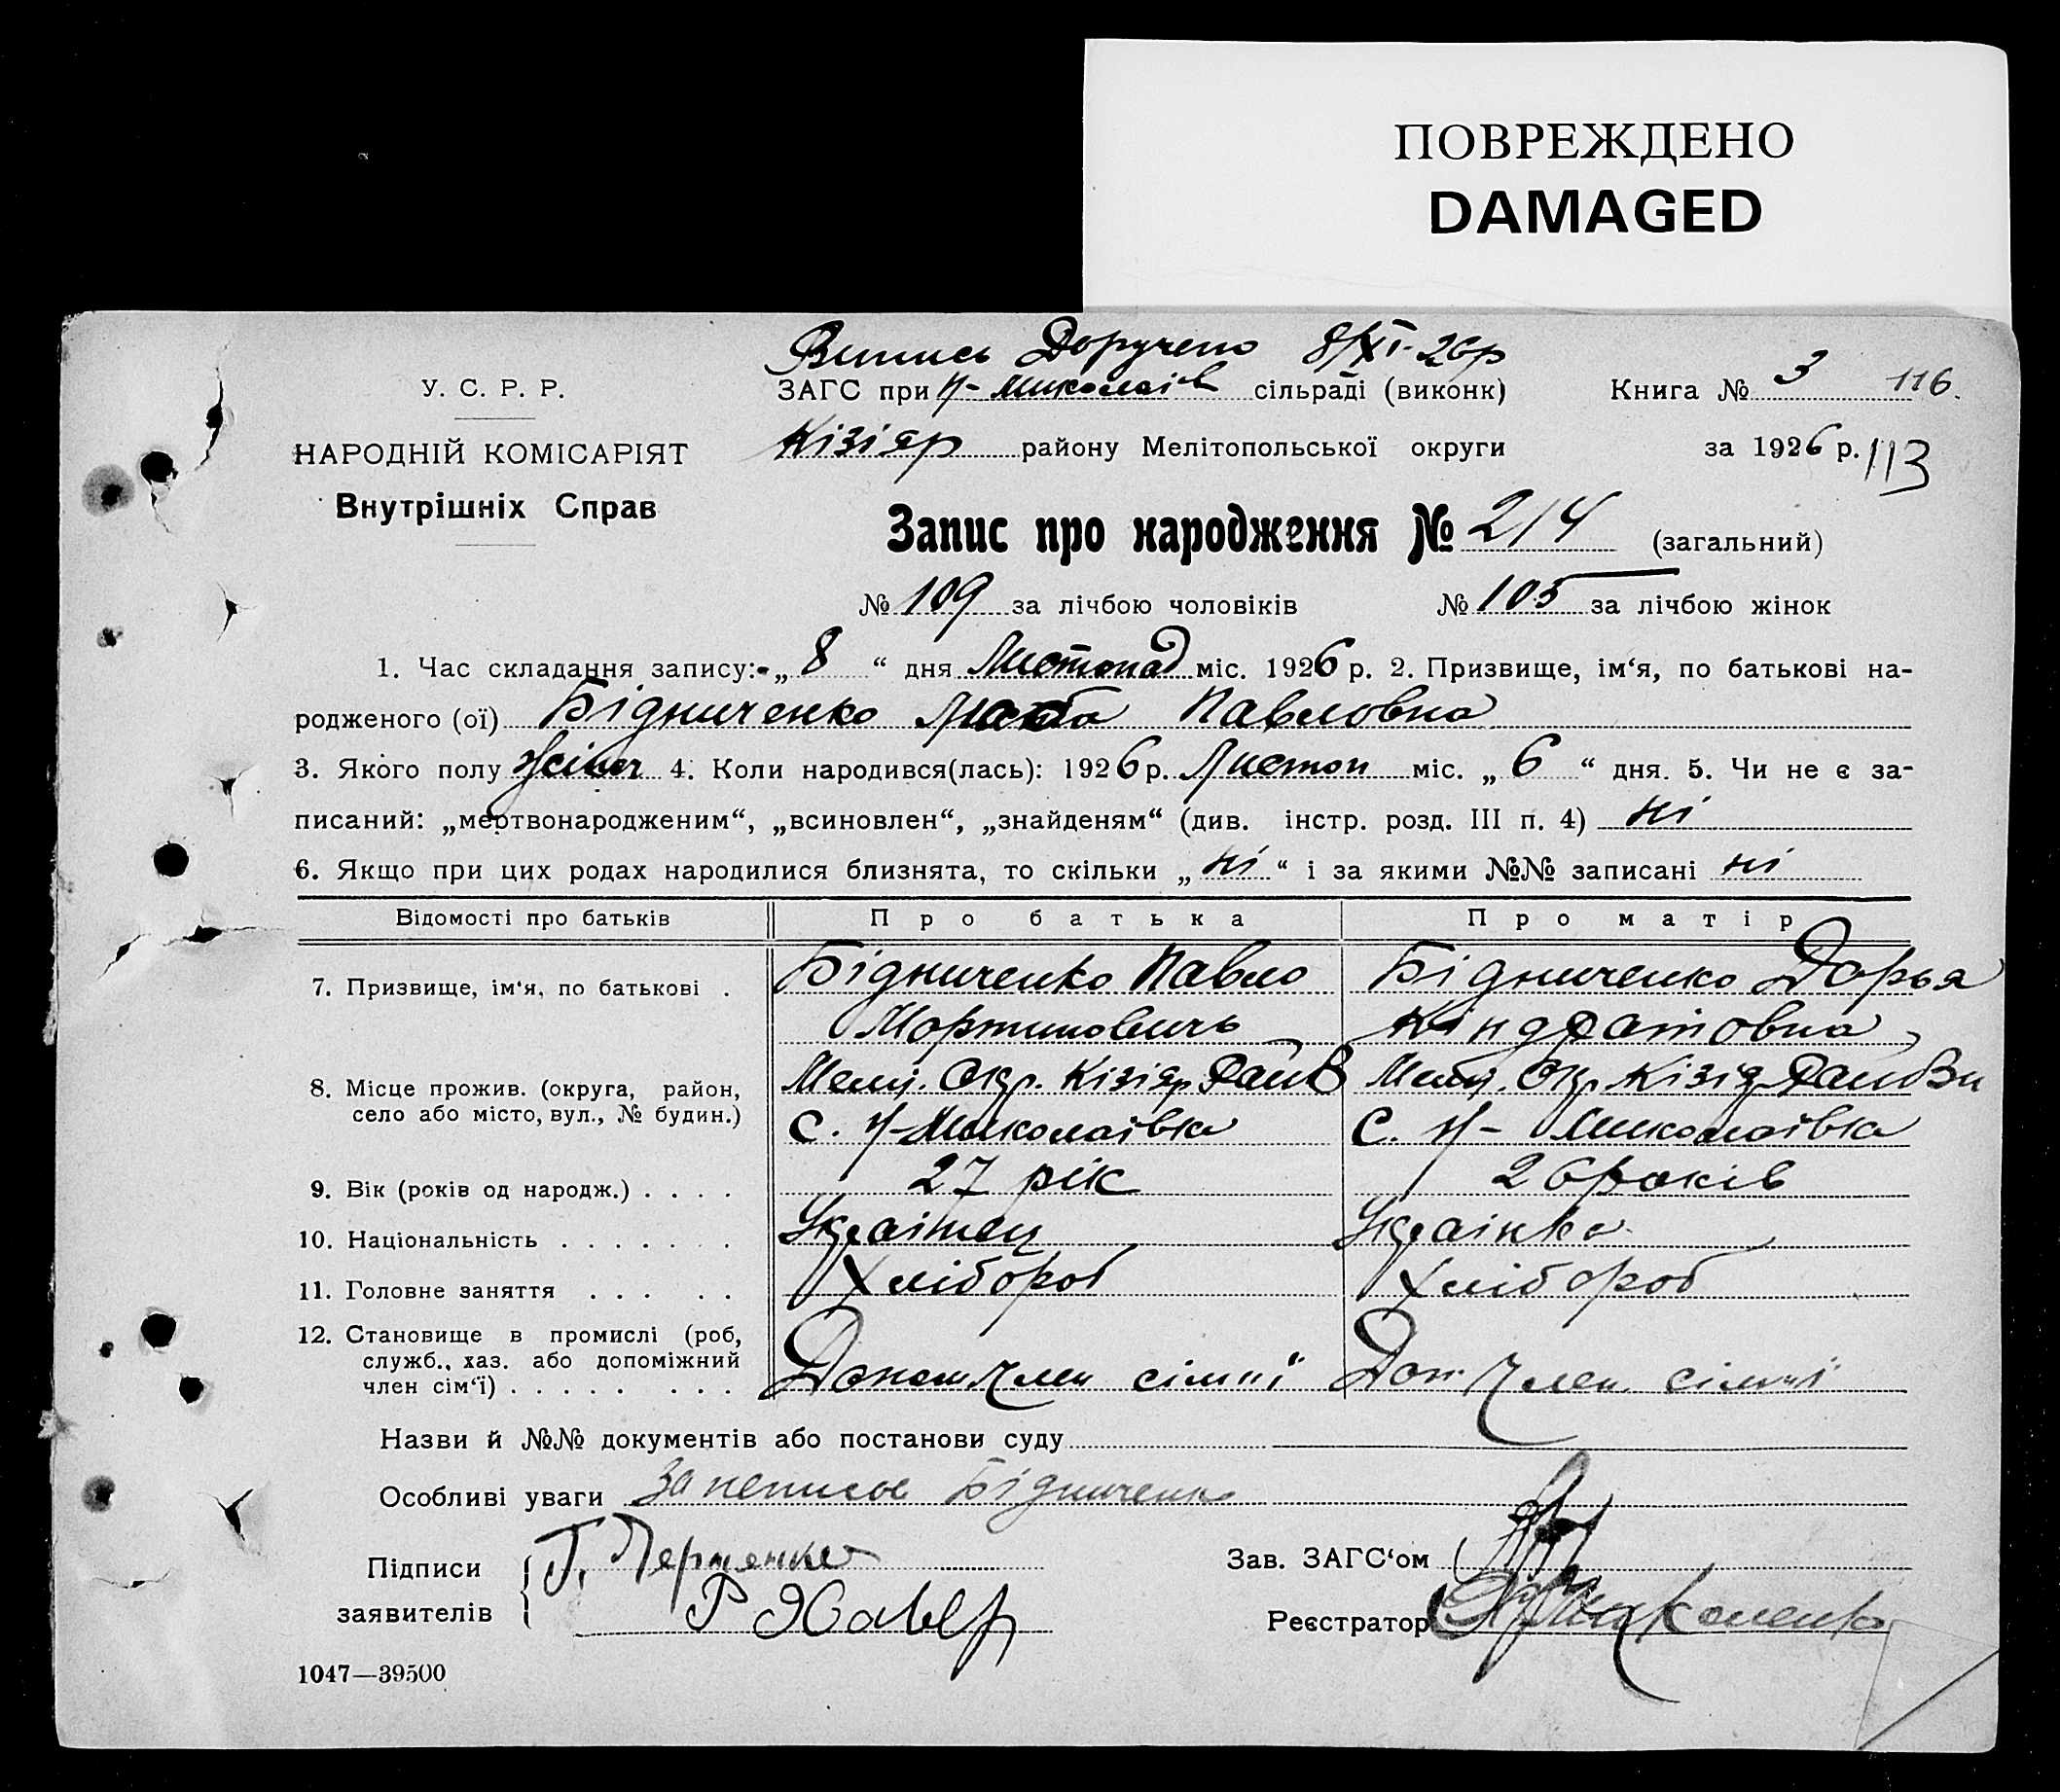 ПОВРЕЖДЕНО
DAMAGED
Випись Доручено 8/XI-26р
У. С. Р. Р.
ЗАГС при Н-Миколаїв сільраді (виконк) Книга № 3 116.
НАРОДНІЙ КОМІСАРІЯТ
Кізіяр району Мелітопольської округи за 1926 р. 113
Внутрішніх Справ
Запис про народження № 214 (загальний)
№ 109 за лічбою чоловіків № 105 за лічбою жінок
1. Час складання запису: „ 8 “ дня Листопад міс. 1926 р. 2. Призвище, ім‘я, по батькові на-
родженого (ої) Бідниченко Павловна
3. Якого полу 4. Коли народився(лась): 1926 р. Листоп міс. „ 6 “ дня. 5. Чи не є за-
писаний: „мертвонародженим“, „всиновлен“, „знайденям“ (див. інстр. розд. III п. 4) ні
6. Якщо при цих родах народилися близнята, то скільки „ ні “ і за якими №№ записані ні
Відомості про батьків Про батька Про матір
7. Призвище, ім‘я, по батькові . Бідниченко Павло Бідниченко Дарья
Мартиновичь Кіндратовна
8. Місце прожив. (округа, район, Меліт. Окр. Кізіяр Окр Кізія
село або місто, вул., № будин.) С. Н-Миколаівка С. Н-Миколаівка
9. Вік (років од народж.) . . . . 27 рік 26 років
10. Національність . . . . . . . Украінец Украінка
11. Головне заняття . . . . . Хлібороб Хлібороб
12. Становище в промислі (роб,
служб., хаз. або допоміжний
член сім‘ї) . . . . . . . . Допом член сімні Доп. член сімні
Назви й №№ документів або постанови суду
Особливі уваги Бідниченко
Підписи
заявителів
Зав. ЗАГС‘ом
Реєстратор
1047—39500